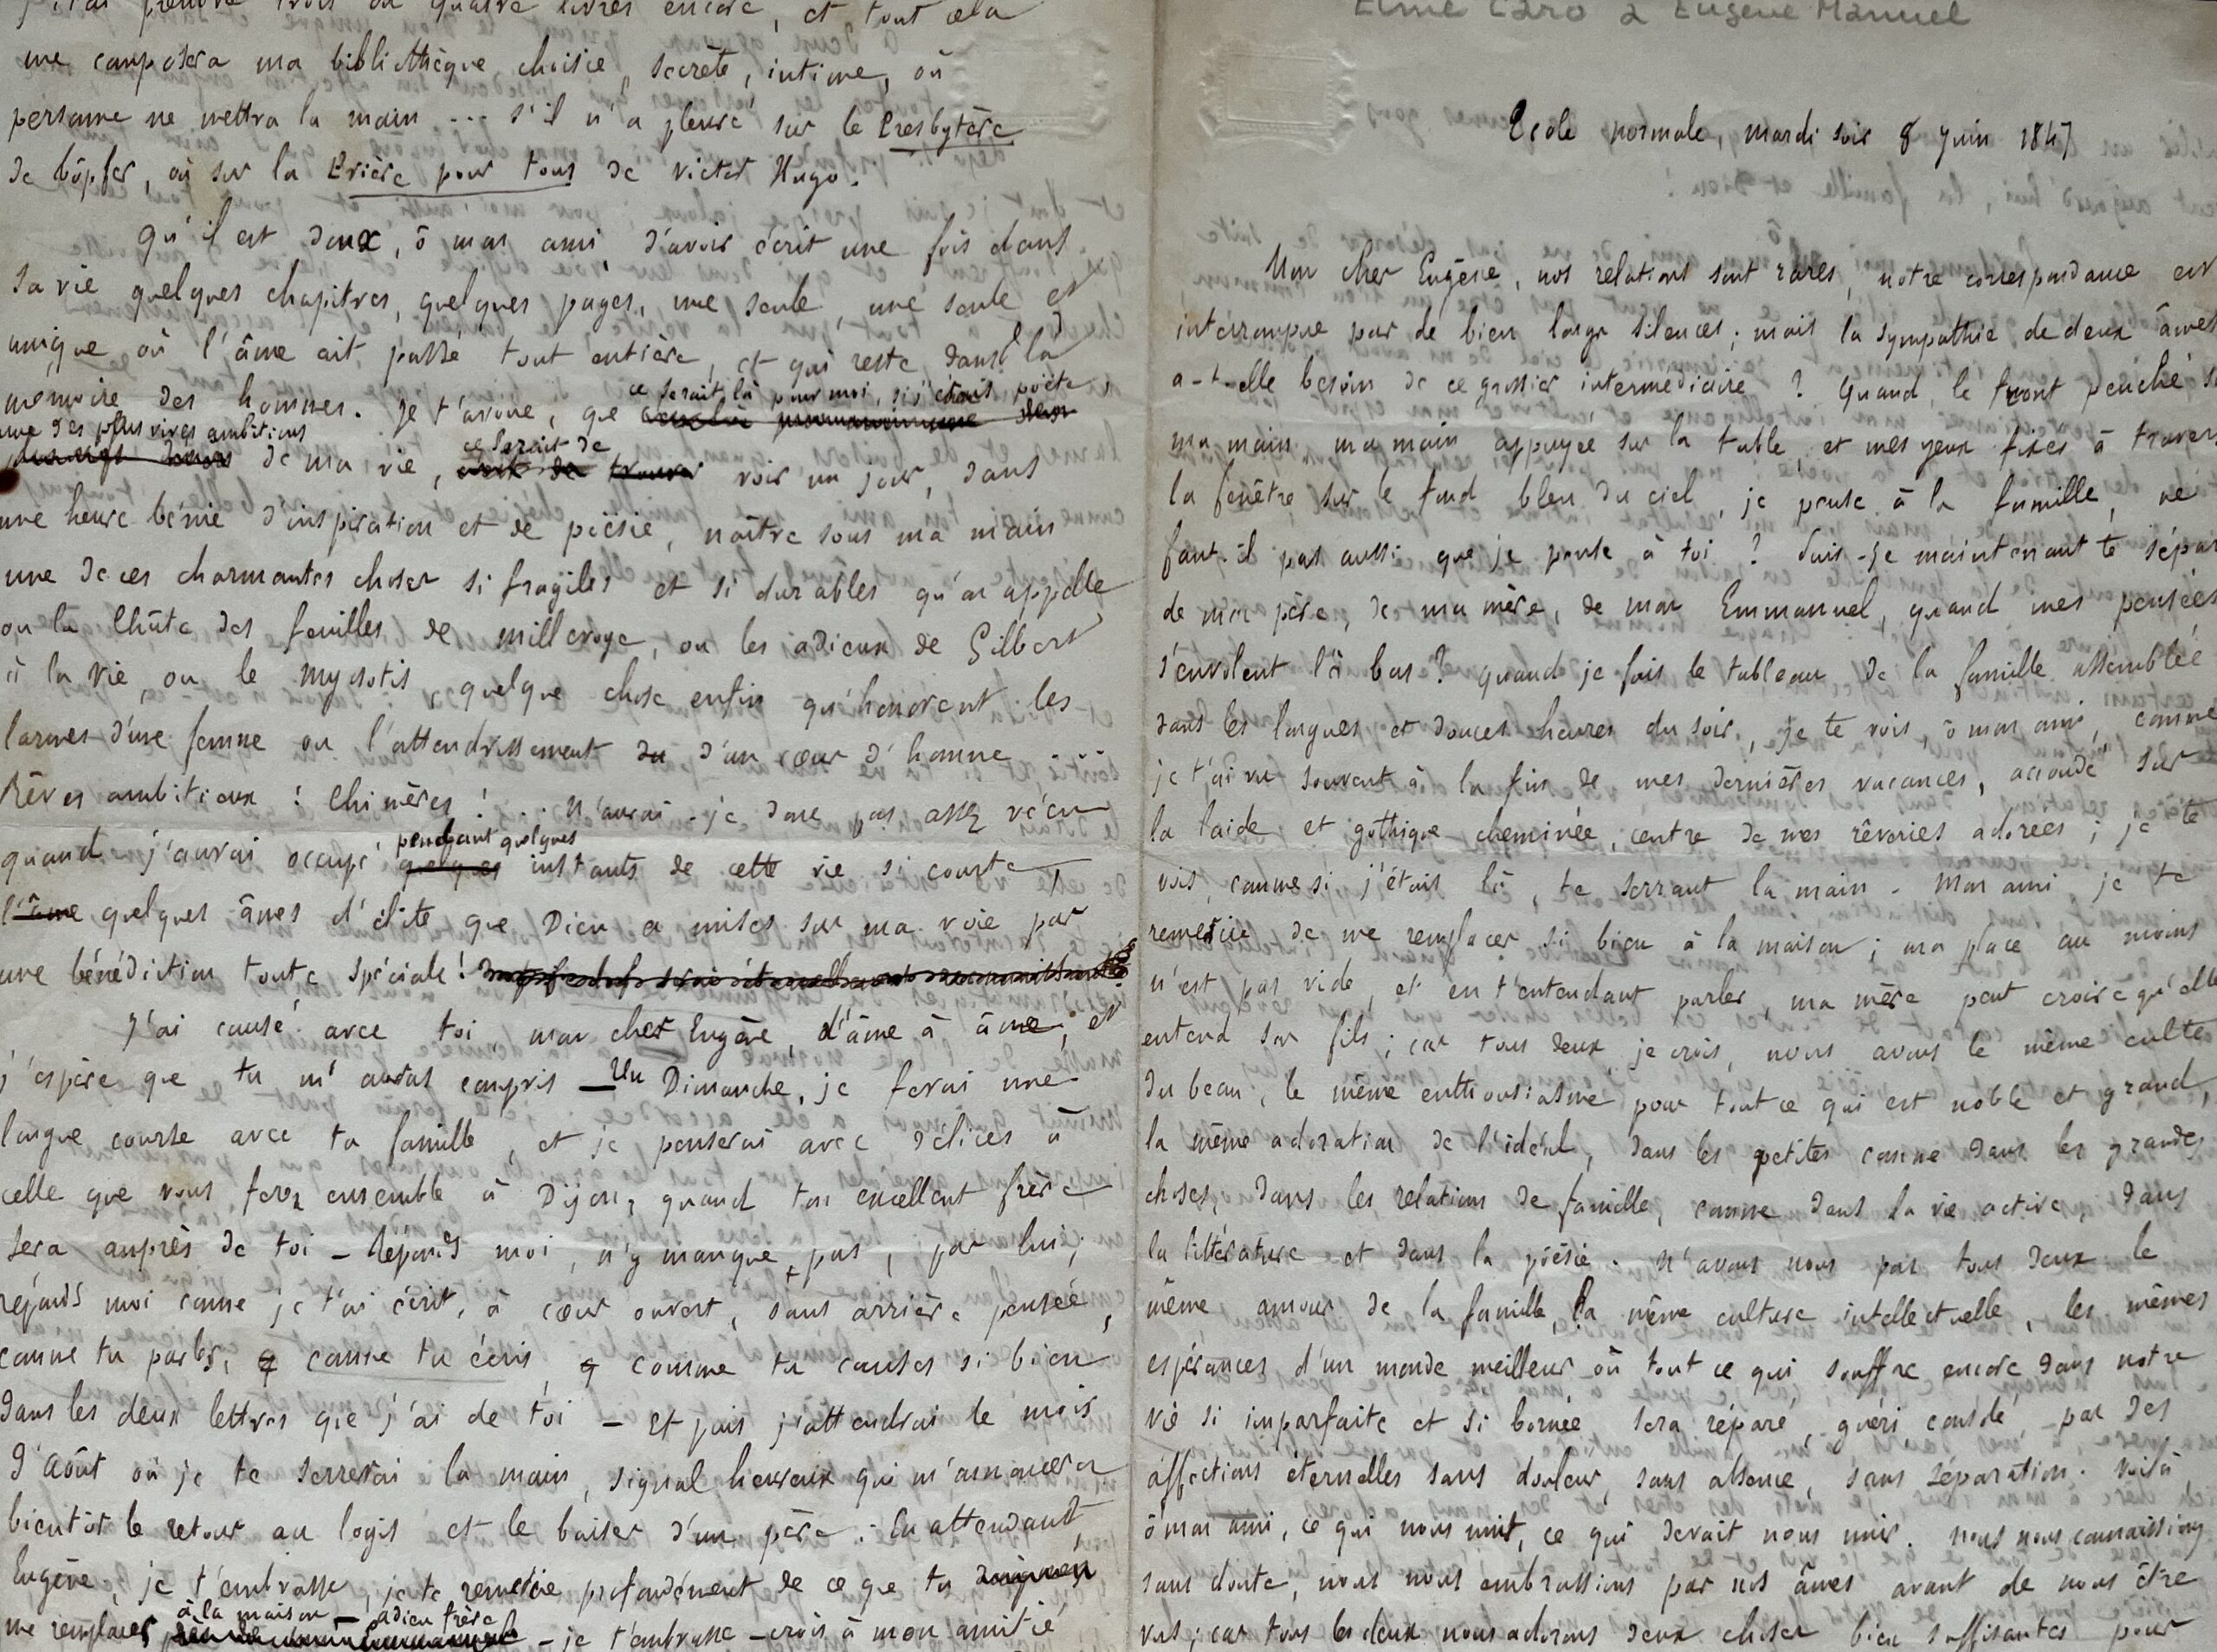 Elme Caro à Eugène Manuel
Ecole normale, mardi soir 8 Juin 1847
Mon cher Eugène, nos relations sont rares, notre correspondance est
interrompue par de bien longs silences ; mais la sympathie de deux âmes
a-t-elle besoin de ce grossier intermédiaire ? Quand, le front penché s
ma main, ma main appuyée sur la table, et mes yeux fixés à travers
la fenêtre sur le fond bleu du ciel, je pense à la famille, ne
faut-il pas aussi que je pense à toi ? Puis-je maintenant te sépar
de mon père, de ma mère, de mon Emmanuel, quand mes pensées
s'envolent là bas ? Quand je fais le tableau de la famille assemblée
dans les longues et douces heures du soir, je te vois, ô mon ami, comme
je t'ai vu souvent à la fin de mes dernières vacances, accoudé sur
la laide et gothique cheminée, centre de mes rêveries adorées ; je te
vois, comme si j'étais là, te serrant la main. Mon ami je te
remercie de me remplacer si bien à la maison ; ma place au moins
n'est pas vide, et en t'entendant parler, ma mère peut croire qu'elle
entend son fils ; car tous deux, je crois, nous avons le même culte
du beau, le même enthousiasme pour tout ce qui est noble et grand,
la même adoration de l'idéal, dans les petites comme dans les grandes
choses, dans les relations de famille, comme dans la vie active, dans
la littérature et dans la poësie. N'avons nous pas tous deux le
même amour de la famille, la même culture intellectuelle, les mêmes
espérances d'un monde meilleur où tout ce qui souffre encore dans notre
vie si imparfaite et si bornée sera réparé, guéri, consolé par des
affections éternelles sans douleur, sans absence, sans séparation. Voilà
ô mon ami, ce qui nous unit, ce qui devait nous unir. Nous nous connaissions
sans doute, nous nous embrassions par nos âmes avant de nous être
vus ; car tous les deux nous adorons deux choses bien suffisantes pour
prendre trois ou quatre livres encore, et tout cela
me composera ma bibliothèque choisie, secrète, intime, où
personne ne mettra la main ... s'il n'a pleuré sur le Presbytère
de Töpfer, où sur la Prière pour tous de Victor Hugo.
Qu'il est doux, ô mon ami, d'avoir écrit une fois dans
sa vie quelques chapitres, quelques pages, une seule, une seule et
unique où l'âme ait passé tout entière, et qui reste dans la
mémoire des hommes. Je t'avoue, que ce serait là pour moi, si j'étais poëte,
une des plus vives ambitions de ma vie, ce serait de voir un jour, dans
une heure bénie d'inspiration et de poësie, naître sous ma main
une de ces charmantes choses si fragiles et si durables qu'on appelle
ou la Chûte des feuilles de Millevoye, ou les adieux de Gilbert
à la vie, ou le Myosotis, quelque chose enfin qu'honorent les
larmes d'une femme ou l'attendrissement du d'un cœur d'homme ...
Rêves ambitieux ! Chimères ! ... N'aurai-je donc pas assez vécu
quand j'aurai occupé pendant quelques instants de cette vie si courte
l'âme quelques âmes d'élite que Dieu a mises sur ma voie par
une bénédiction toute spéciale !
J'ai causé avec toi, mon cher Eugène, d'âme à âme, et
j'espère que tu m'auras compris — Un Dimanche, je ferai une
longue course avec ta famille, et je penserai avec délices à
celle que vous ferez ensemble à Dijon, quand ton excellent frère
sera auprès de toi — Réponds moi, n'y manque pas, par lui ;
réponds moi comme je t'ai écrit, à cœur ouvert, sans arrière pensée,
comme tu parles, comme tu écris, comme tu causes si bien
dans les deux lettres que j'ai de toi — et puis j'attendrai le mois
d'août où je te serrerai la main, signal heureux qui m'annoncera
bientôt le retour au logis et le baiser d'un père. En attendant,
Eugène, je t'embrasse, je te remercie profondément de ce que tu
me remplaces à la maison — adieu frère — je t'embrasse — crois à mon amitié